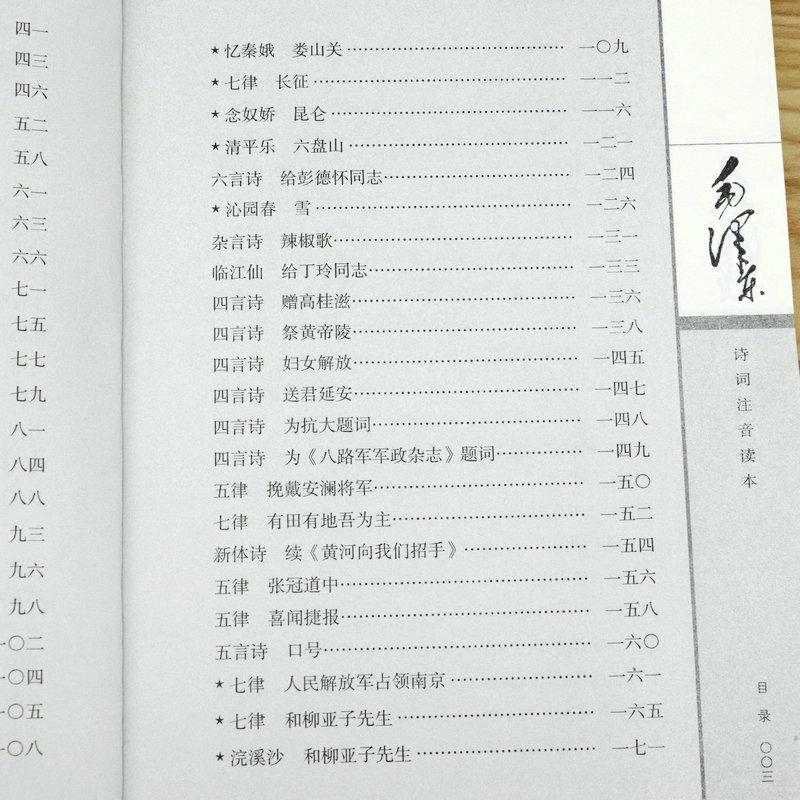 四一
四三
四六
五二
五八
六一
六三
六六
七一
七五
七七
七九
八一
八四
八八
九三
九六
九八
一〇二
一〇四
一〇五
一〇八
★忆秦娥 娄山关……一〇九
★七律 长征……一一二
★念奴娇 昆仑……一一六
★清平乐 六盘山……一二一
六言诗 给彭德怀同志……一二四
★沁园春 雪……一二六
杂言诗 辣椒歌……一三一
临江仙 给丁玲同志……一三三
四言诗 赠高桂滋……一三六
四言诗 祭黄帝陵……一三八
四言诗 妇女解放……一四五
四言诗 送君延安……一四七
四言诗 为抗大题词……一四八
四言诗 为《八路军军政杂志》题词……一四九
五律 挽戴安澜将军……一五〇
七律 有田有地吾为主……一五二
新体诗 续《黄河向我们招手》……一五四
五律 张冠道中……一五六
五律 喜闻捷报……一五八
五言诗 口号……一六〇
★七律 人民解放军占领南京……一六一
★七律 和柳亚子先生……一六五
★浣溪沙 和柳亚子先生……一七一
毛泽东
诗词注音读本
目录 〇〇三